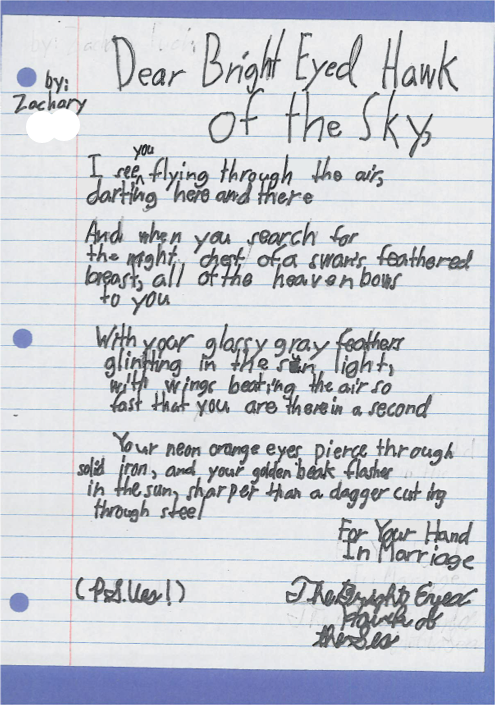 Dear Bright Eyed Hawk
by:
Zachary
of the Sky,
I see you flying through the air,
darting here and there
And when you search for
the might chest of a swan's feathered
breast, all of the heaven bows
to you
With your glassy gray feathers
glinting in the sun light,
with wings beating the air so
fast that you are there in a second
Your neon orange eyes pierce through
solid iron, and your golden beak flashes
in the sun, sharper than a dagger cut ing
through steel
For Your Hand
In Marriage
(P.S. Yes!)
The Bright Eyed
of
the Sea